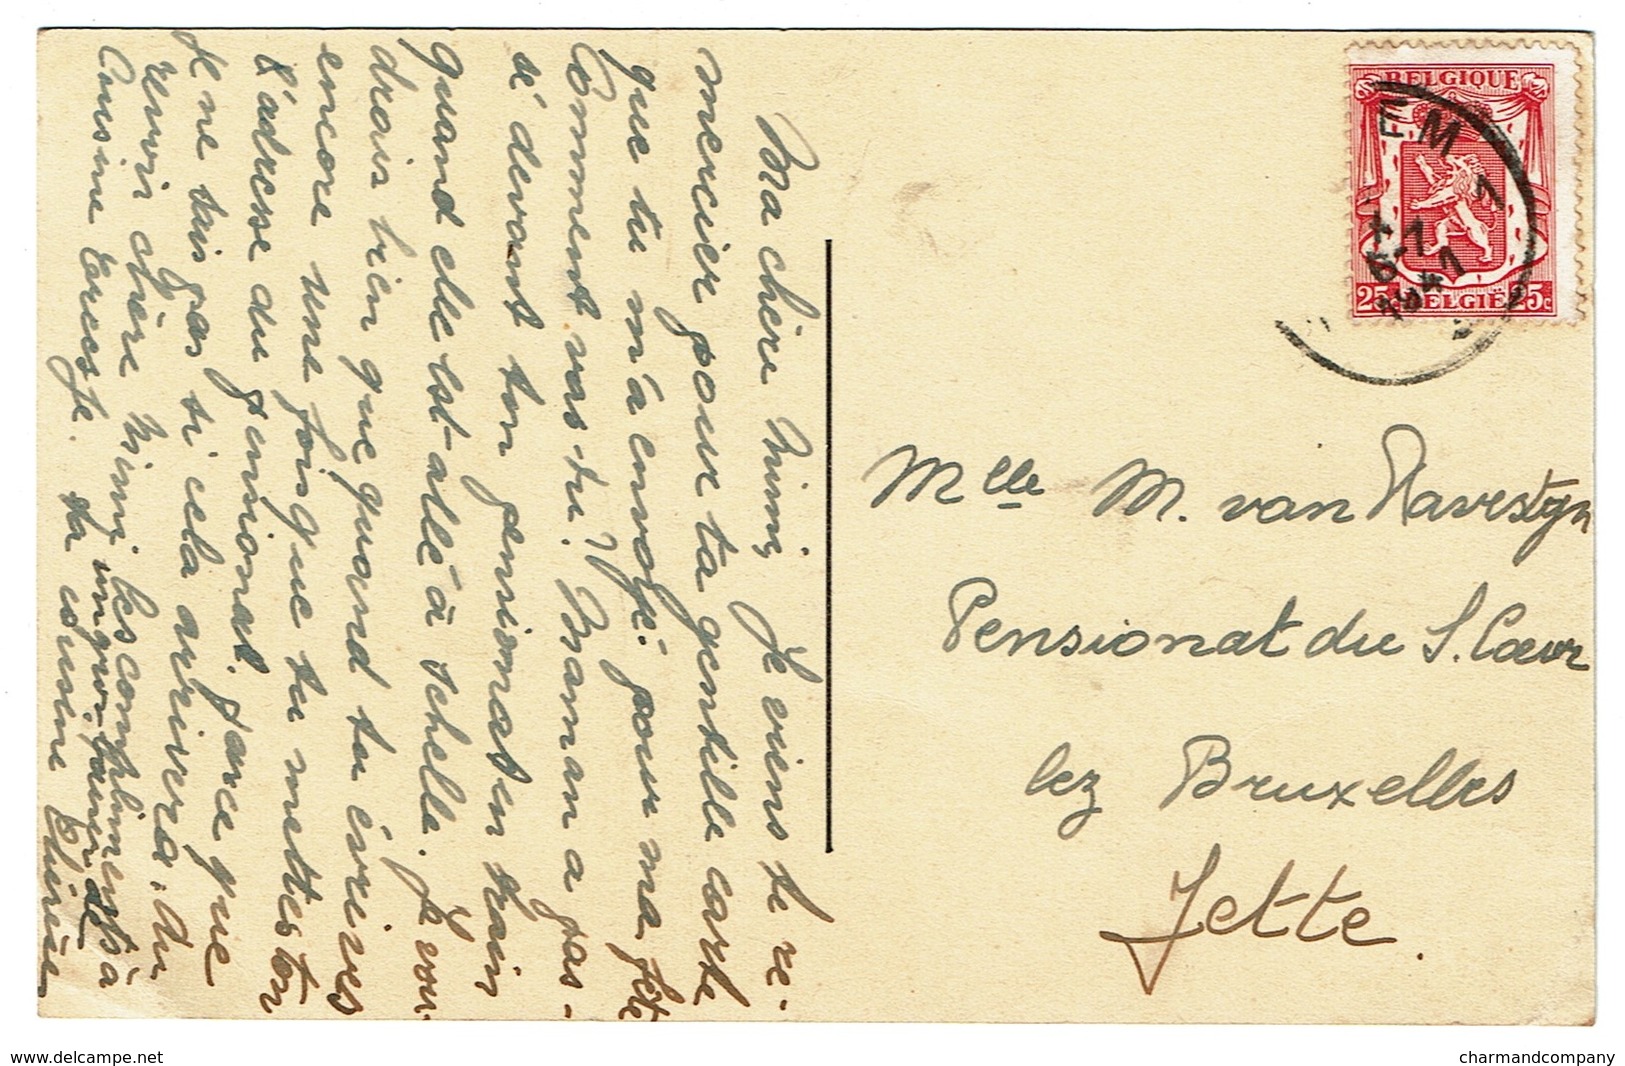 Ma chère Mimi, Je viens te re-
mercier pour ta gentille carte
que tu m'a envoyé pour ma fête
Comment vas-tu? Maman a pas-
sé devant ton pensionat en train
quand elle est-allé à Schelle. Je vou-
drais bien que quand tu écrives
encore une fois que tu mettes ton
l'adresse du pensionat. Parce que
je ne sais pas si cela arrivra. Au
revoir chère Mimi les compliments à
Cousine ta cousine
BELGIQUE
EM
1941
25c BELGIË 25c
Mlle M. van Havestyn
Pensionat du S. Cœur
lez Bruxelles
Jette.
www.delcampe.net
charmandcompany